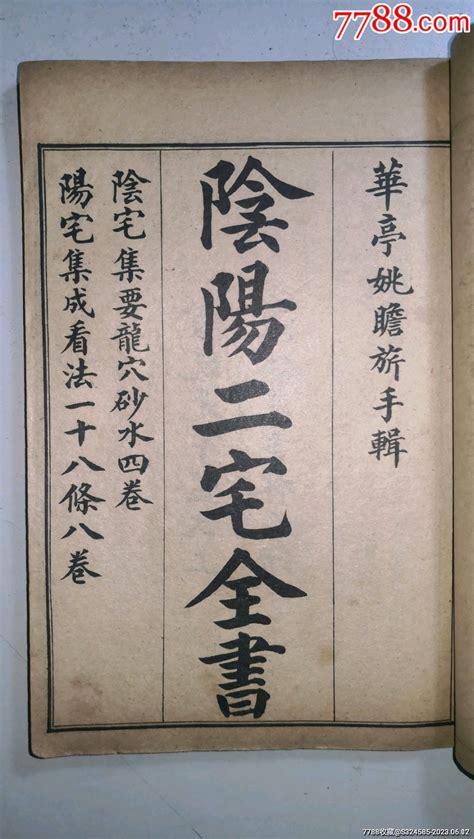 7788.com
華亭姚瞻旂手輯
陰陽二宅全書
陰宅集要龍穴砂水四卷
陽宅集成看法一十八條八卷
7788收藏@S324585-2023.06.02